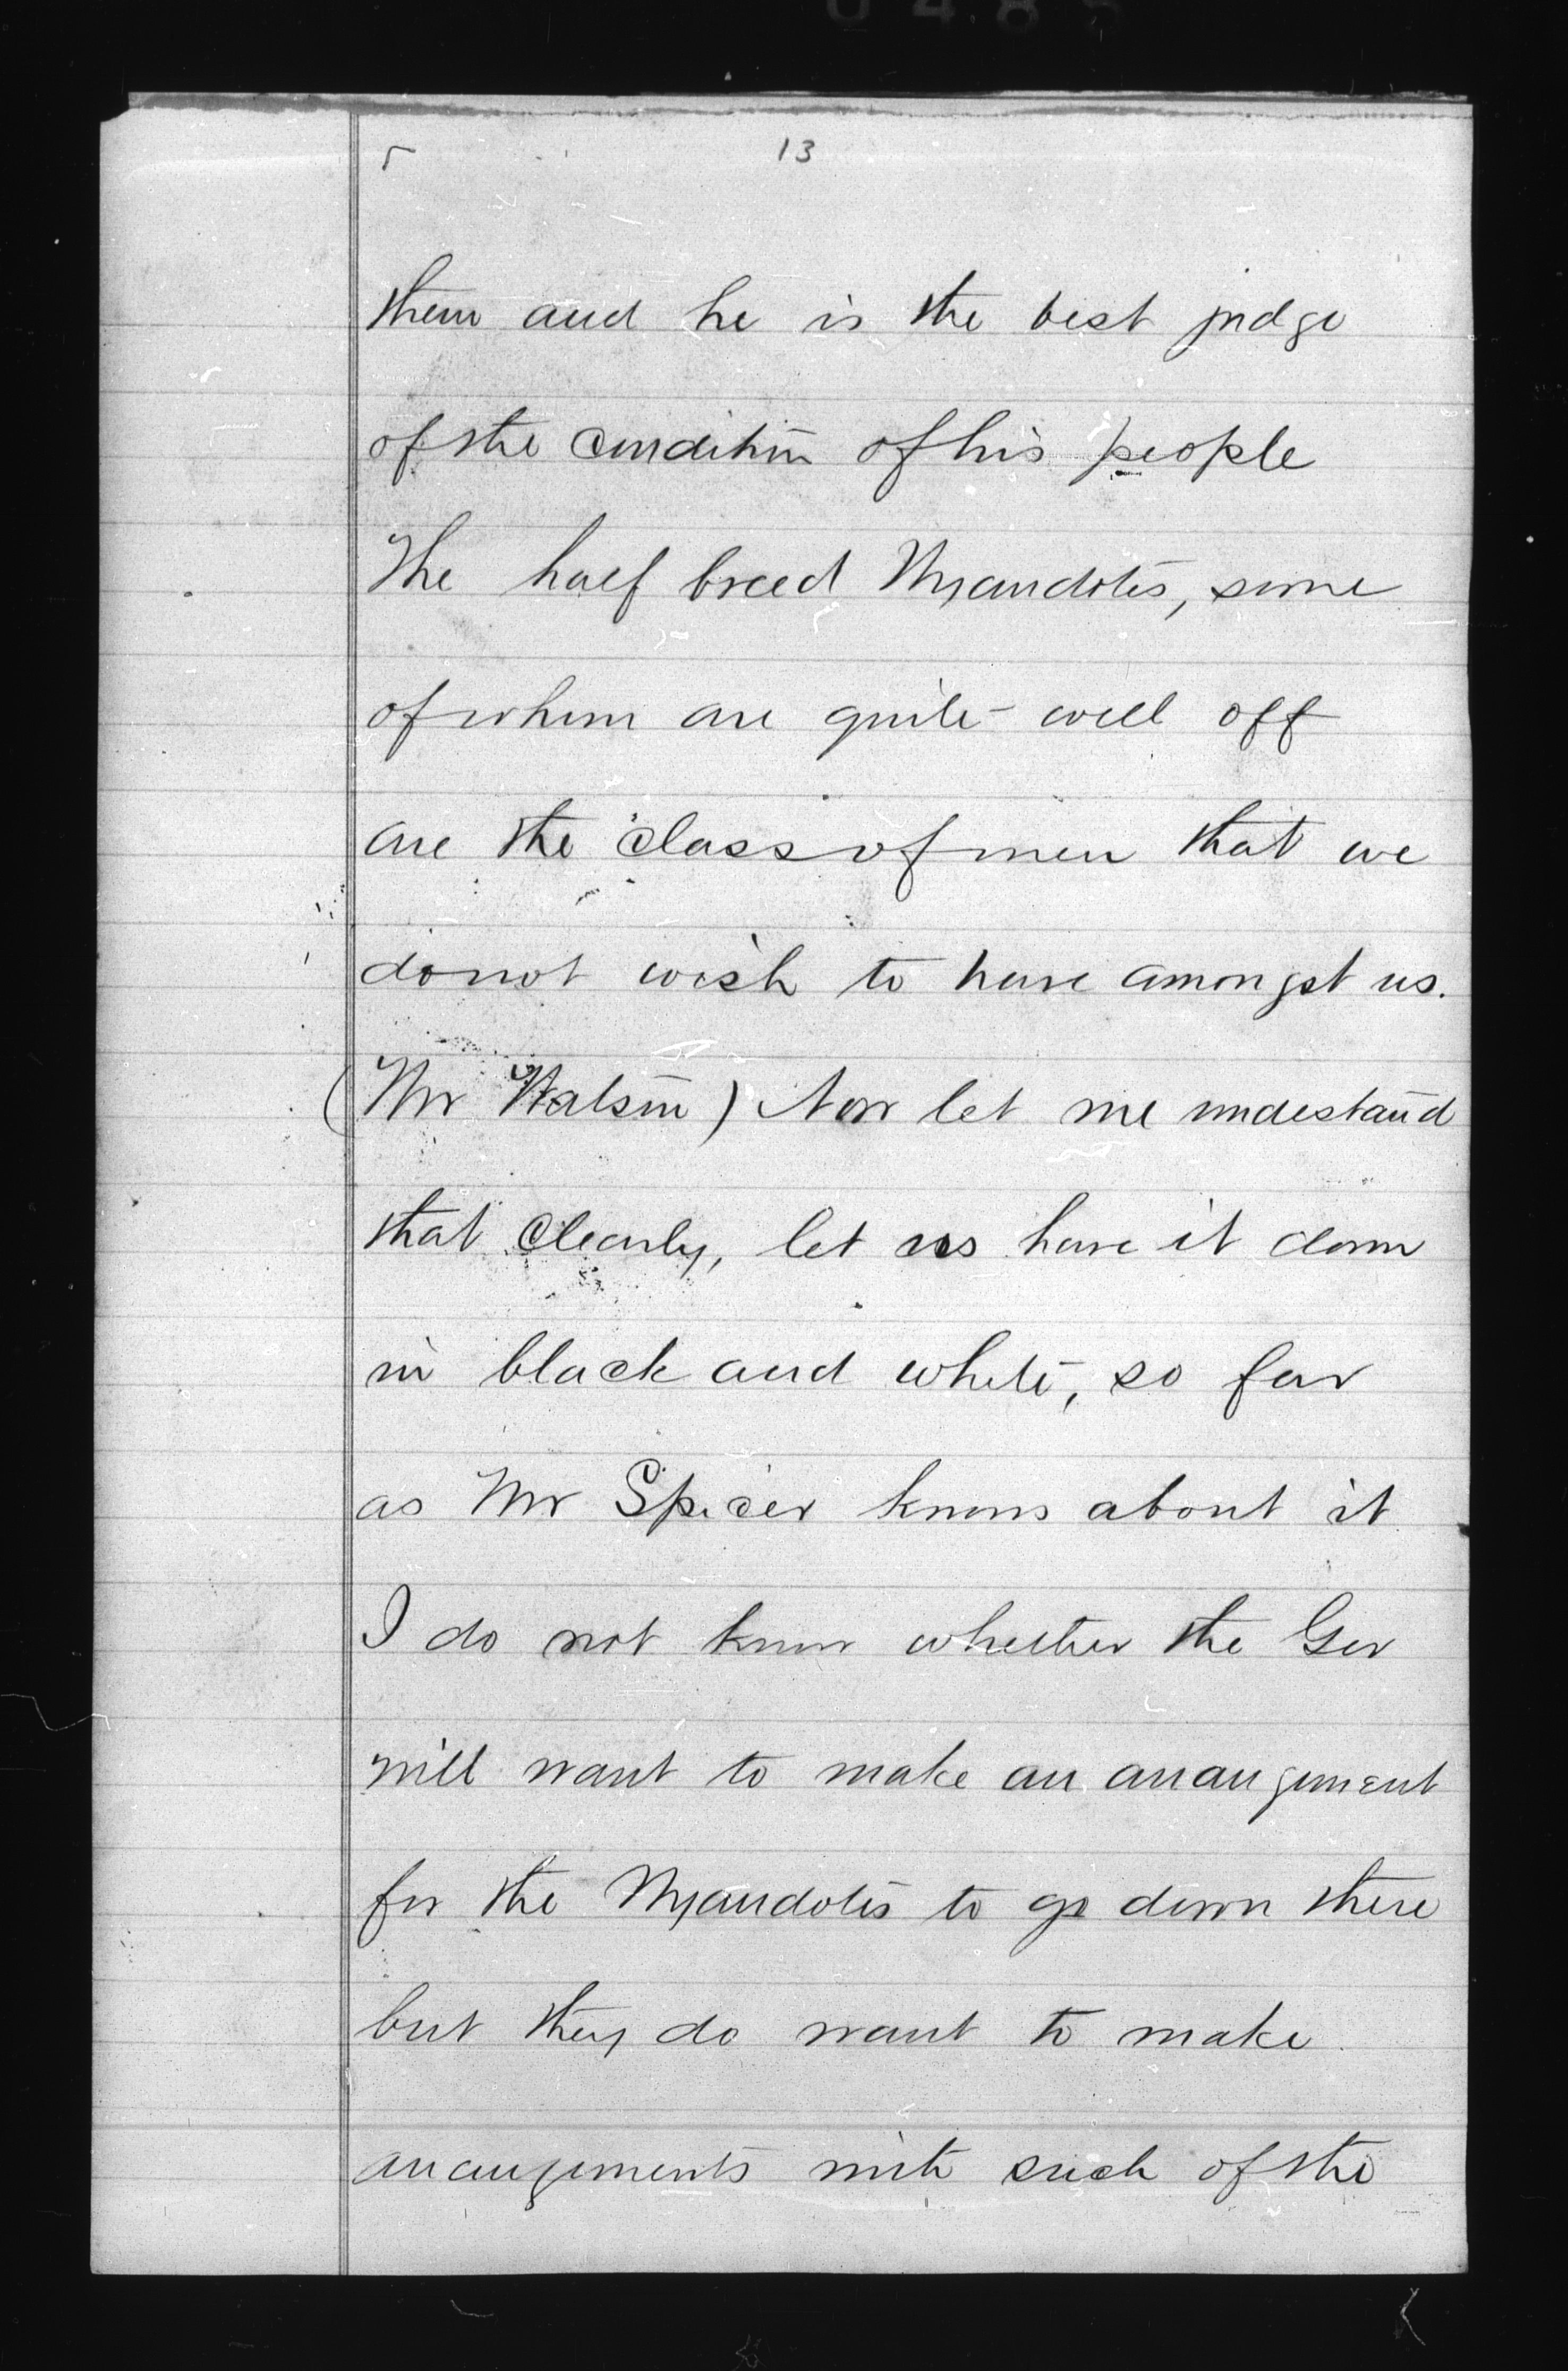 13
them and he is the best judge
of the condition of his people
The half breed Wyandotes, some
of whom are quite well off
are the class of men that we
do not wish to have amongst us.
(Mr Watson) Now let me undestand
that clearly, let us have it down
in black and white, so far
as Mr Spicer knows about it
I do not know whether the Gov
will want to make an arrangement
for the Wyandotes to go down there
but they do want to make
arrangements with such of the